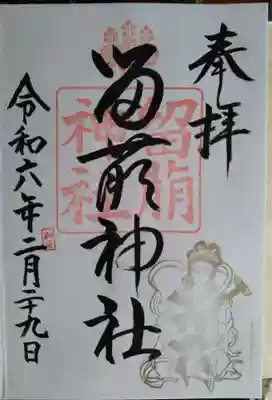 奉拝
留萌神社
留萌神社
令和六年二月二十九日